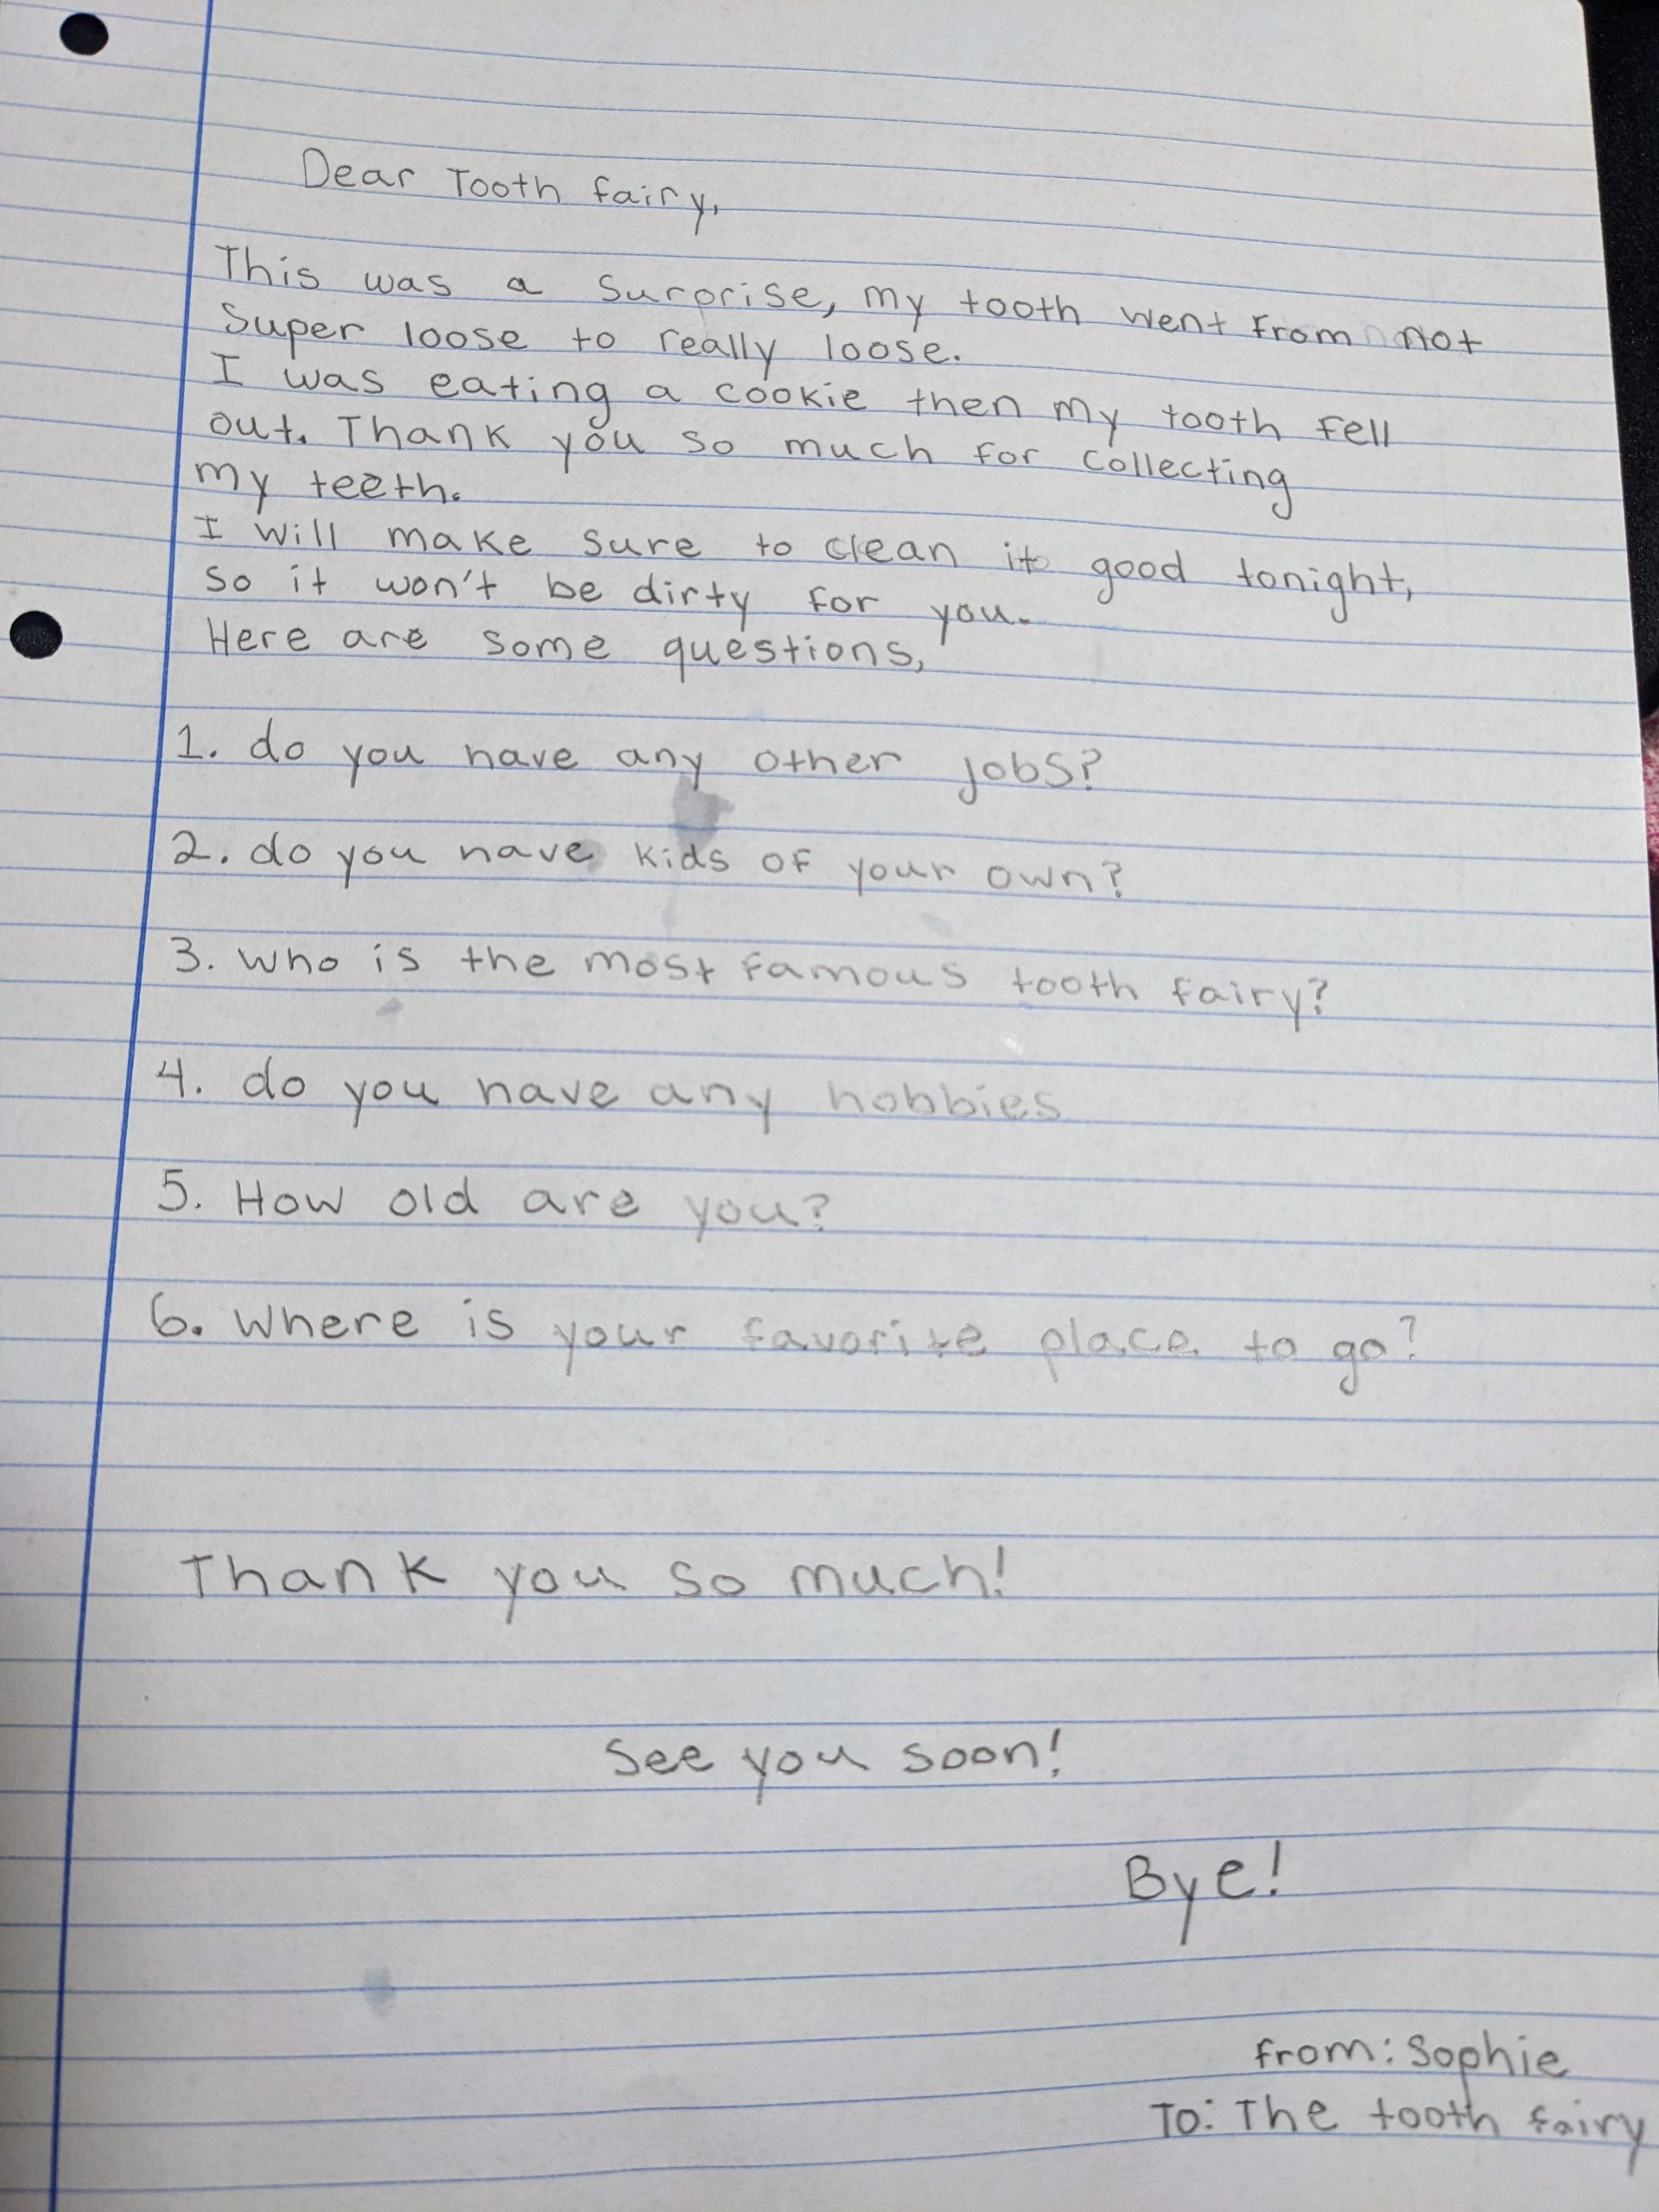 Dear Tooth fairy,
This was a surprise, my tooth went from not
super loose to really loose.
I was eating a cookie then my tooth fell
out. Thank you so much for collecting
my teeth.
I will make sure to clean it good tonight,
so it won't be dirty for you.
Here are some questions,
1. do you have any other jobs?
2. do you have kids of your own?
3. who is the most famous tooth fairy?
4. do you have any hobbies
5. How old are you?
6. Where is your favorite place to go?
Thank you so much!
See you soon!
Bye!
from: Sophie
To: The tooth fairy